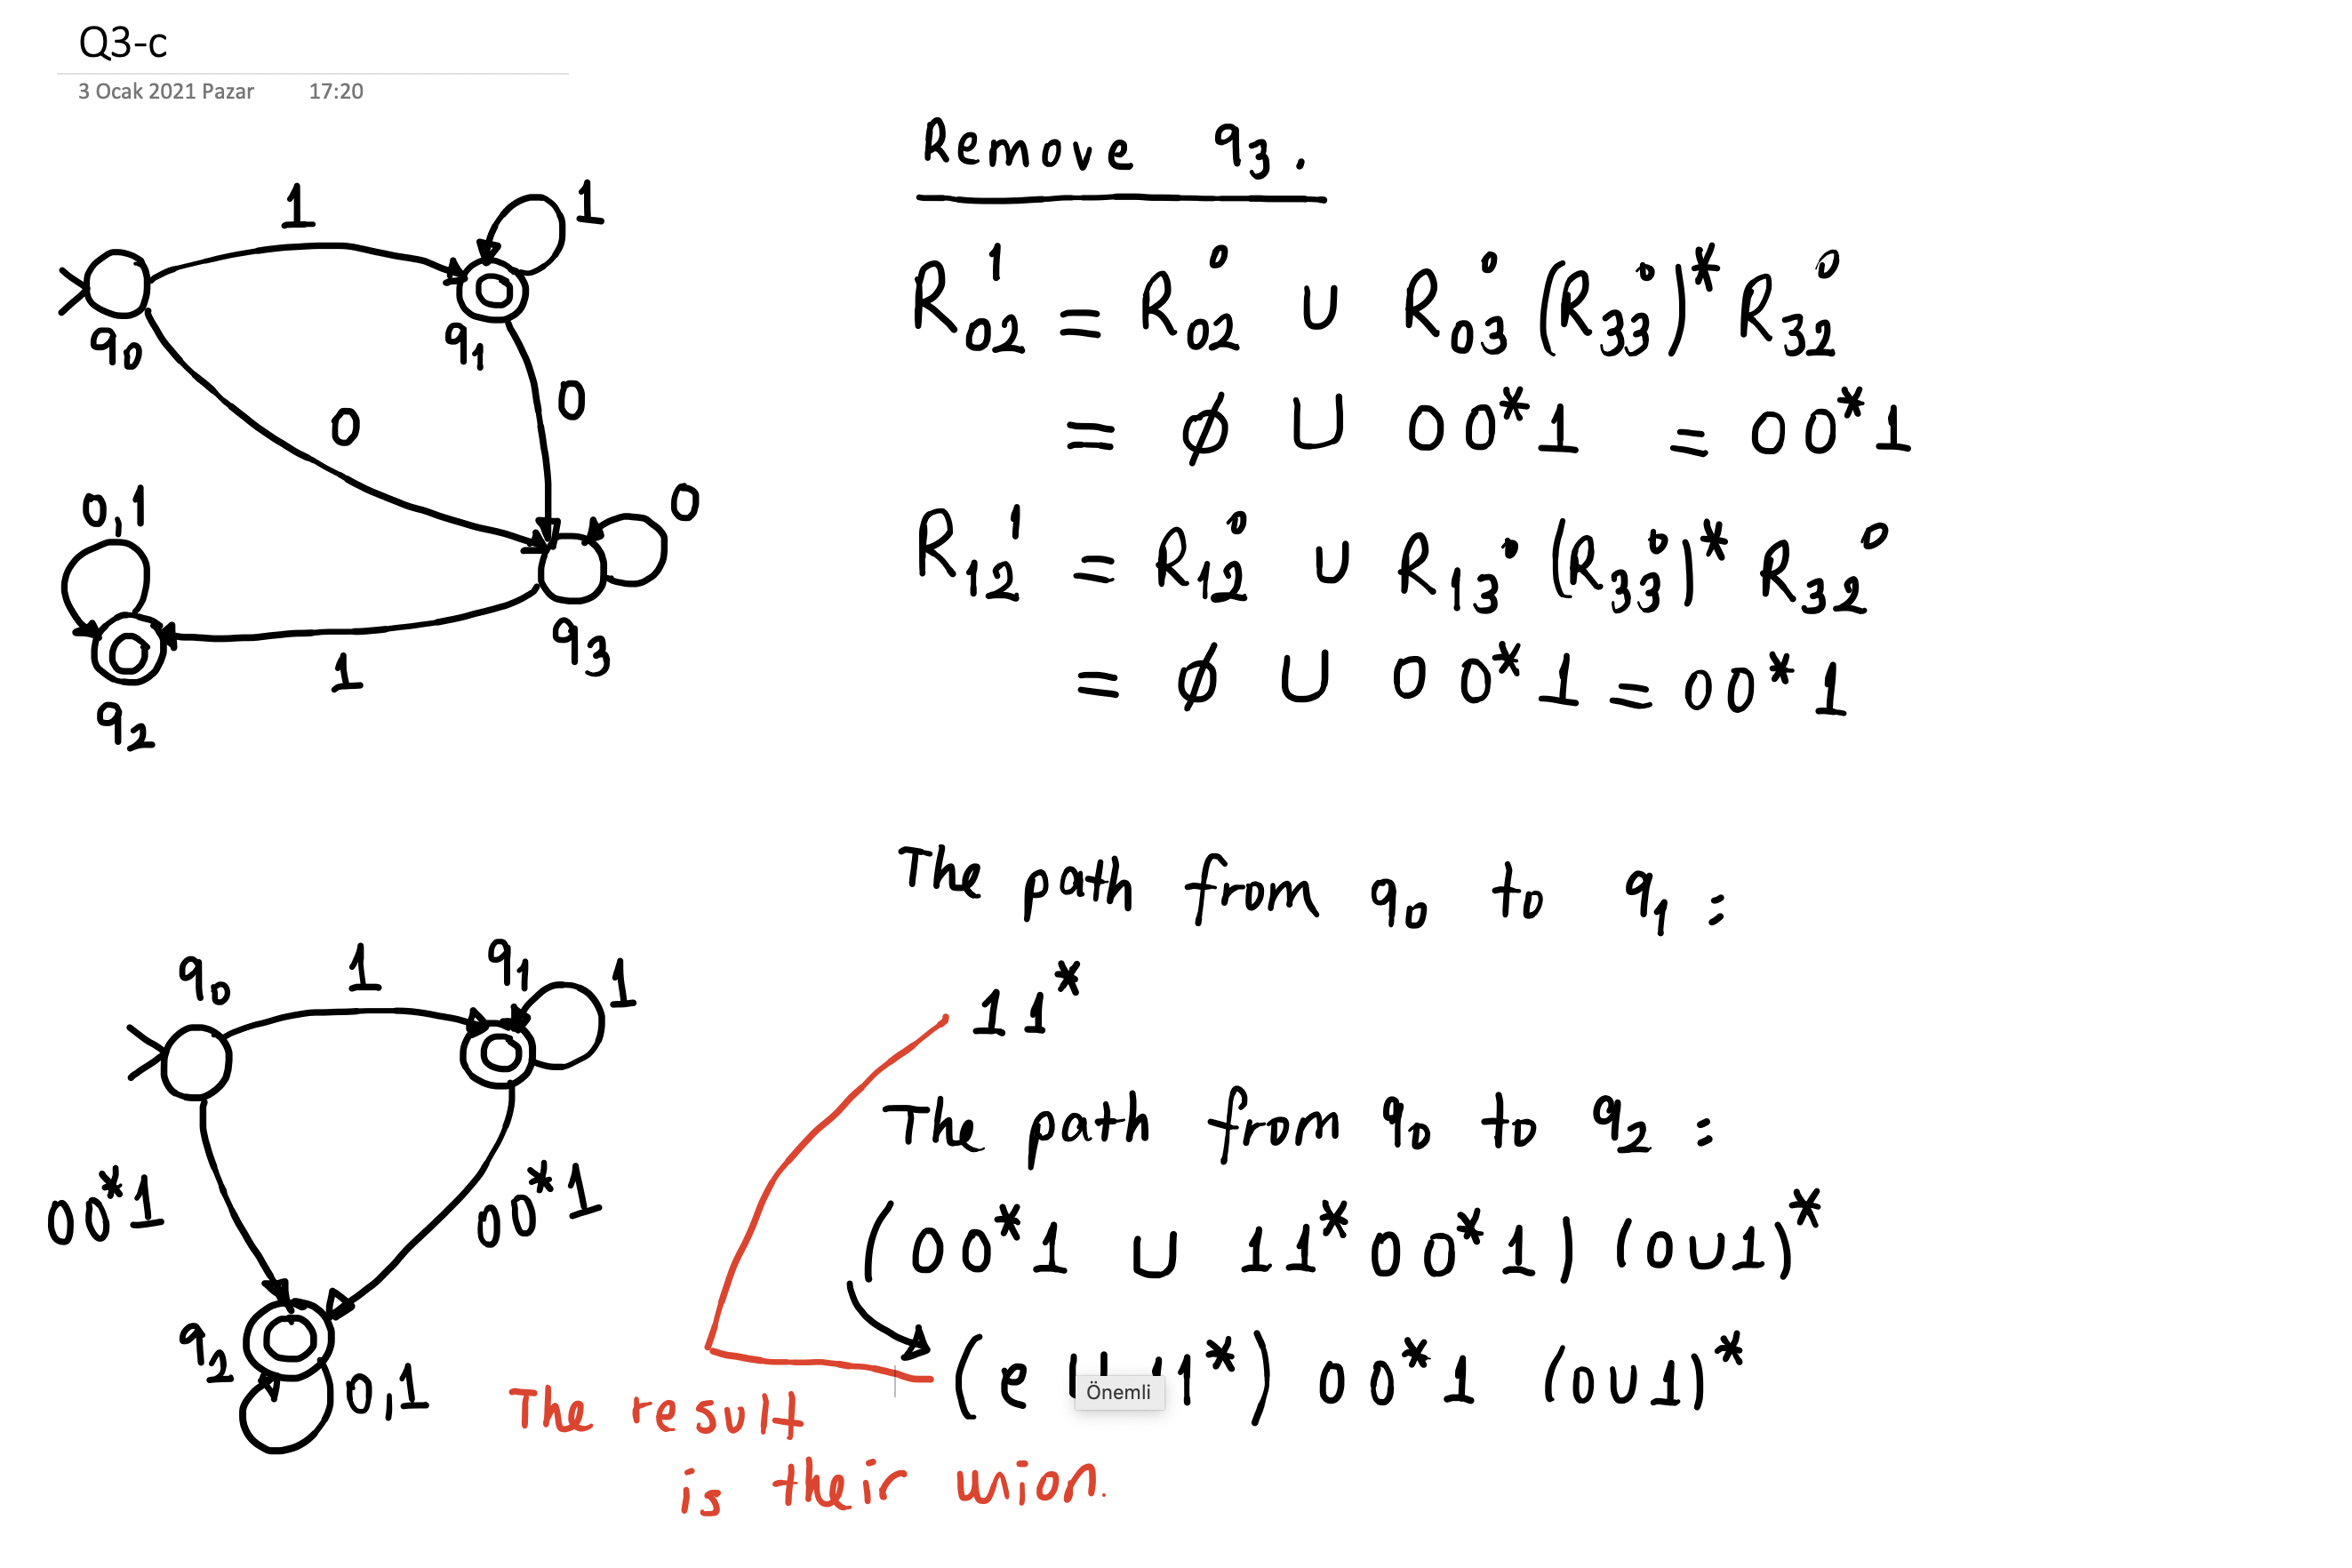 Q3-c
3 Ocak 2021 Pazar 17:20
1
1
q0
q1
0
0
0,1
0
1
q3
q2
Remove q3.
R02^1 = R02^0 ∪ R03^0 (R33^0)* R32^0
= ∅ ∪ 00*1 = 00*1
R12^1 = R12^0 ∪ R13^0 (R33^0)* R32^0
= ∅ ∪ 00*1 = 00*1
q0
1
q1
1
00*1
00*1
q2
0,1
The path from q0 to q1 :
11*
The path from q0 to q2 :
(00*1 ∪ 11*00*1) (0∪1)*
(e ∪ 11*) 00*1 (0∪1)*
Önemli
The result
is their union.